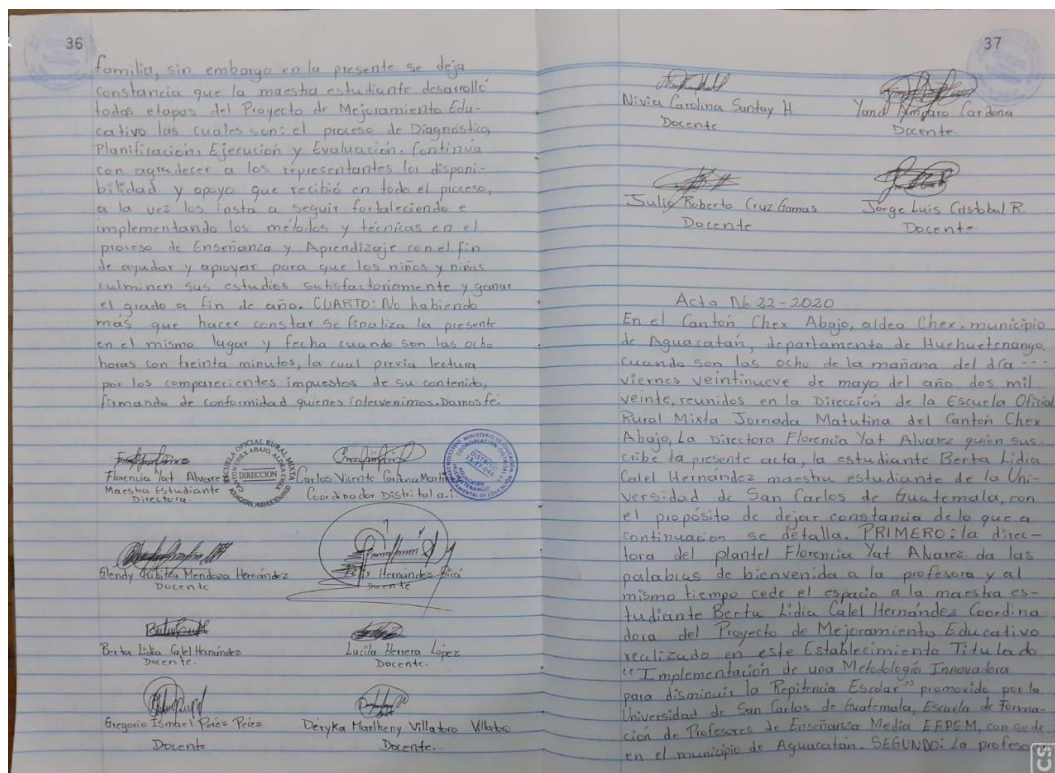 36
familia, sin embargo en la presente se deja
constancia que la maestra estudiante desarrolló
todas etapas del Proyecto de Mejoramiento Edu-
cativo las cuales son: el proceso de Diagnostico,
Planificación, Ejecución y Evaluación. Continúa
con agradecer a los representantes la disponi-
bilidad y apoyo que recibió en todo el proceso,
a la vez los insta a seguir fortaleciendo e
implementando los métodos y técnicas en el
proceso de Enseñanza y Aprendizaje con el fin
de ayudar y apoyar para que los niños y niñas
culminen sus estudios satisfactoriamente y ganar
el grado a fin de año. CUARTO: No habiendo
más que hacer constar se finaliza la presente
en el mismo lugar y fecha cuando son las ocho
horas con treinta minutos, la cual previa lectura
por los comparecientes impuestos de su contenido,
firmando de conformidad quienes intervenimos. Damos fé.
Florencia Yat Alvarez
Maestra Estudiante
Directora
DIRECCION
Carlos Vicente Cardona
Coordinador Distrital a.i
Glendy Mendoza Hernández
Docente
Hernández
Docente
Berta Lidia Calel Hernández
Docente.
Lucila Herrera López
Docente.
Gregorio Ismael Pérez Pérez
Docente
Deryka Marlheny Villatoro Villatoro
Docente.
37
Nivia Carolina Suntay H.
Docente
Amparo Cardona
Docente.
Julio Roberto Cruz Gamas
Docente
Jorge Luis Cristobal R.
Docente.
Acta No 22-2020
En el Cantón Chex Abajo, aldea Chex, municipio
de Aguacatán, departamento de Huehuetenango,
cuando son las ocho de la mañana del día ---
viernes veintinueve de mayo del año dos mil
veinte, reunidos en la Dirección de la Escuela Oficial
Rural Mixta Jornada Matutina del Cantón Chex
Abajo, La Directora Florencia Yat Alvarez quien sus-
cribe la presente acta, la estudiante Berta Lidia
Calel Hernández maestra estudiante de la Uni-
versidad de San Carlos de Guatemala, con
el propósito de dejar constancia de lo que a
continuación se detalla. PRIMERO: la direc-
tora del plantel Florencia Yat Alvarez da las
palabras de bienvenida a la profesora y al
mismo tiempo cede el espacio a la maestra es-
tudiante Berta Lidia Calel Hernández Coordina-
dora del Proyecto de Mejoramiento Educativo
realizado en este Establecimiento Titulado
"Implementación de una Metodología Innovadora
para disminuir la Repitencia Escolar" promovido por la
Universidad de San Carlos de Guatemala, Escuela de Forma-
ción de Profesores de Enseñanza Media EFPEM, con sede
en el municipio de Aguacatán. SEGUNDO: La profeso
CS